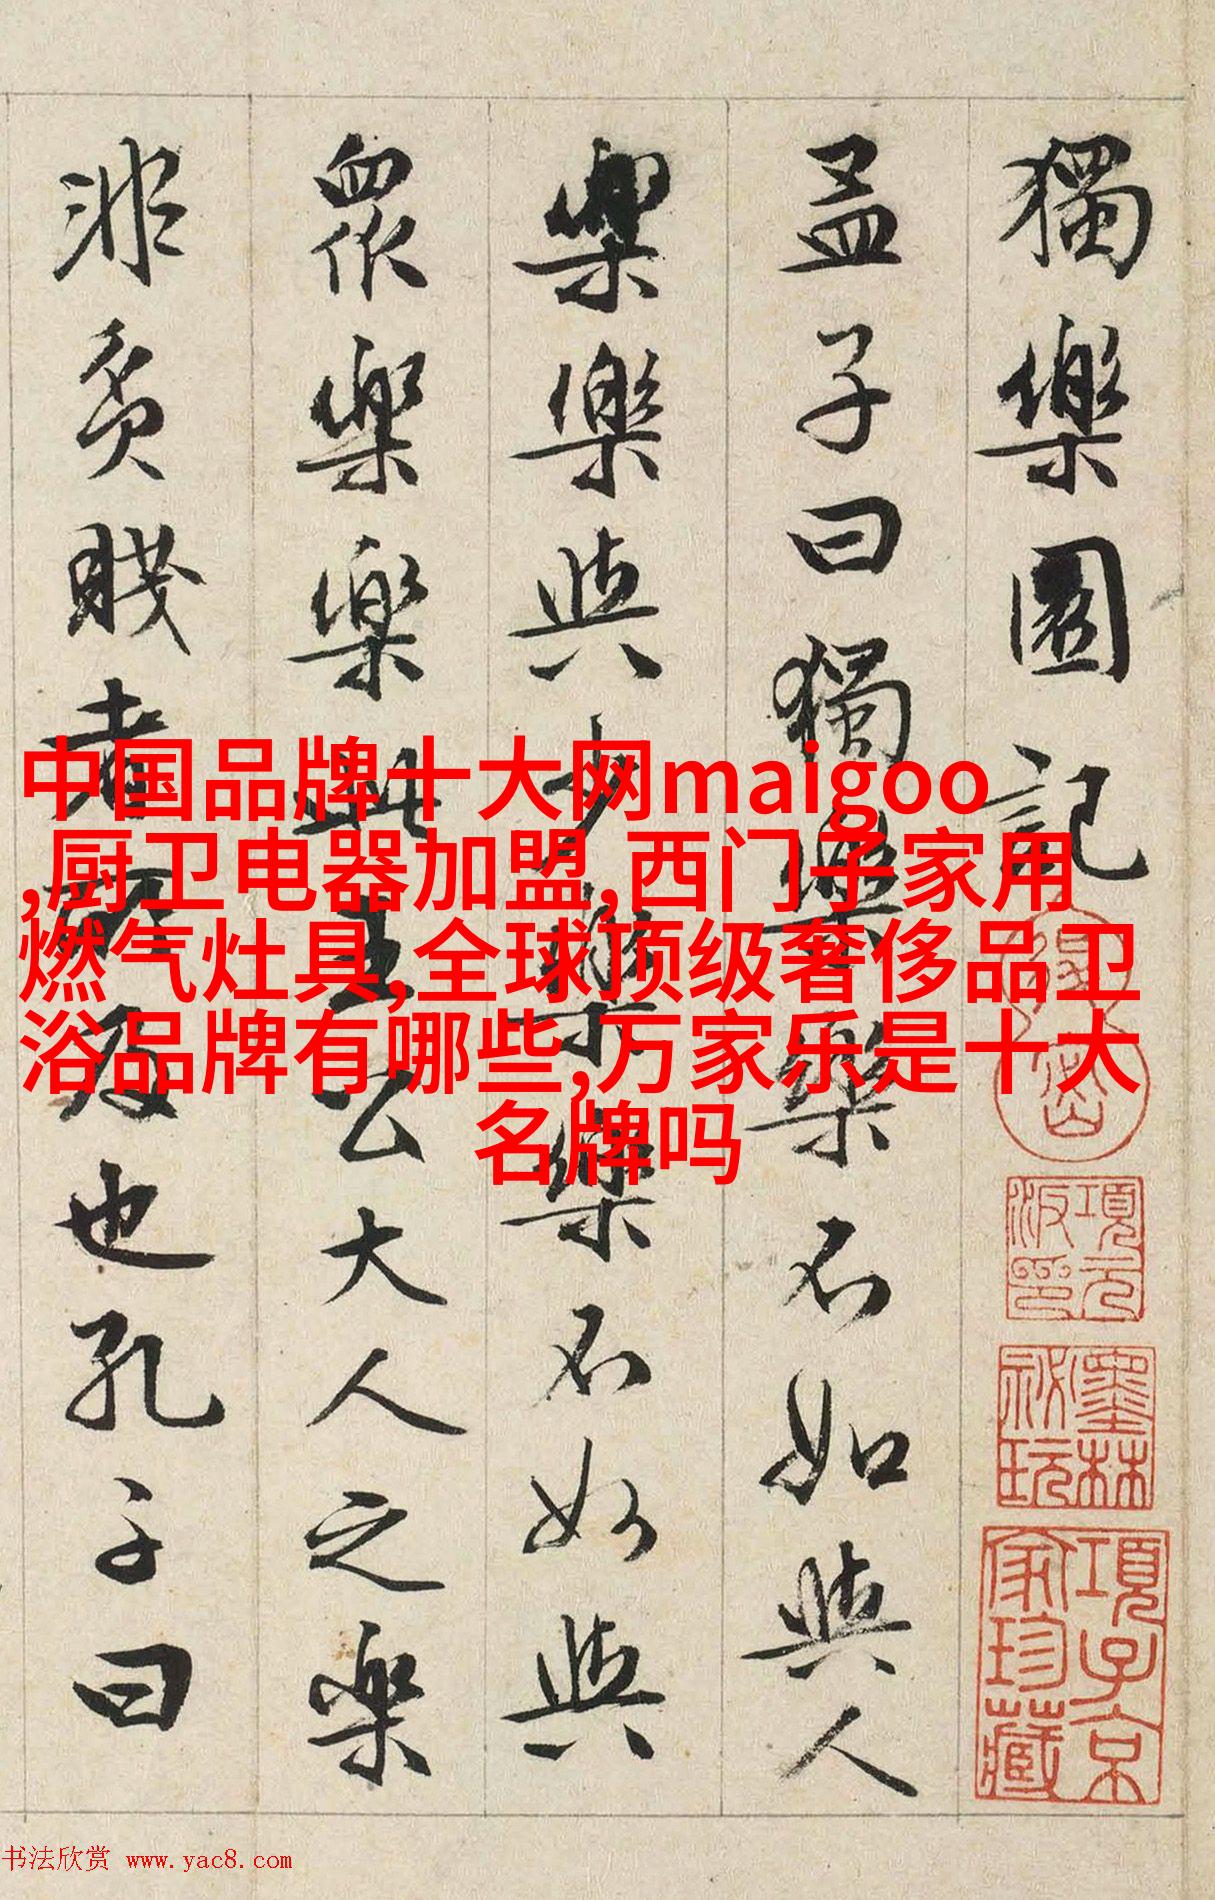 獨樂園記
孟子曰獨樂樂不如與人
樂樂與少樂樂不如與
眾樂樂此王公大人之樂
非貧賤者所及也孔子曰
中国品牌十大网maigoo
,厨卫电器加盟,西门子家用
燃气灶具,全球顶级奢侈品卫
浴品牌有哪些,万家乐是十大
名牌吗
項元汴印
墨林祕玩
項子京家珍藏
书法欣赏 www.yac8.com